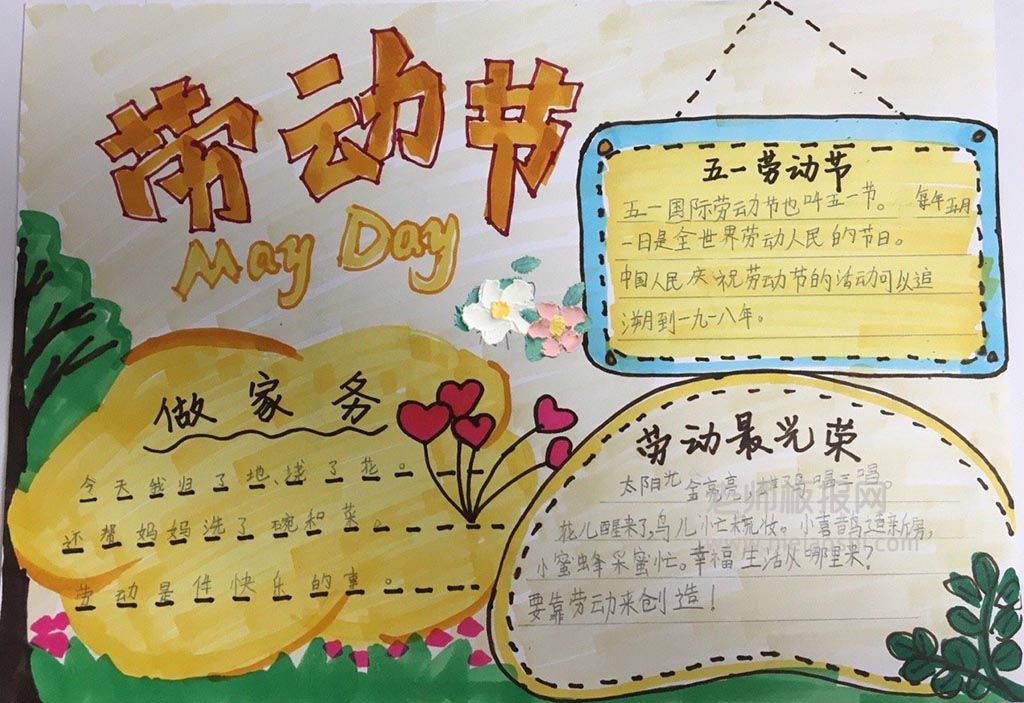 劳动节
May Day
五一劳动节
五一国际劳动节也叫五一节。每年五月
一日是全世界劳动人民的节日。
中国人民庆祝劳动节的活动可以追
溯到一九一八年。
做家务
今天我扫了地、浇了花。
还帮妈妈洗了碗和菜。
劳动是件快乐的事。
劳动最光荣
太阳光金亮亮,雄鸡唱三唱。
花儿醒来了,鸟儿忙梳妆。小喜鹊造新房,
小蜜蜂采蜜忙。幸福生活从哪里来?
要靠劳动来创造!
老师板报网